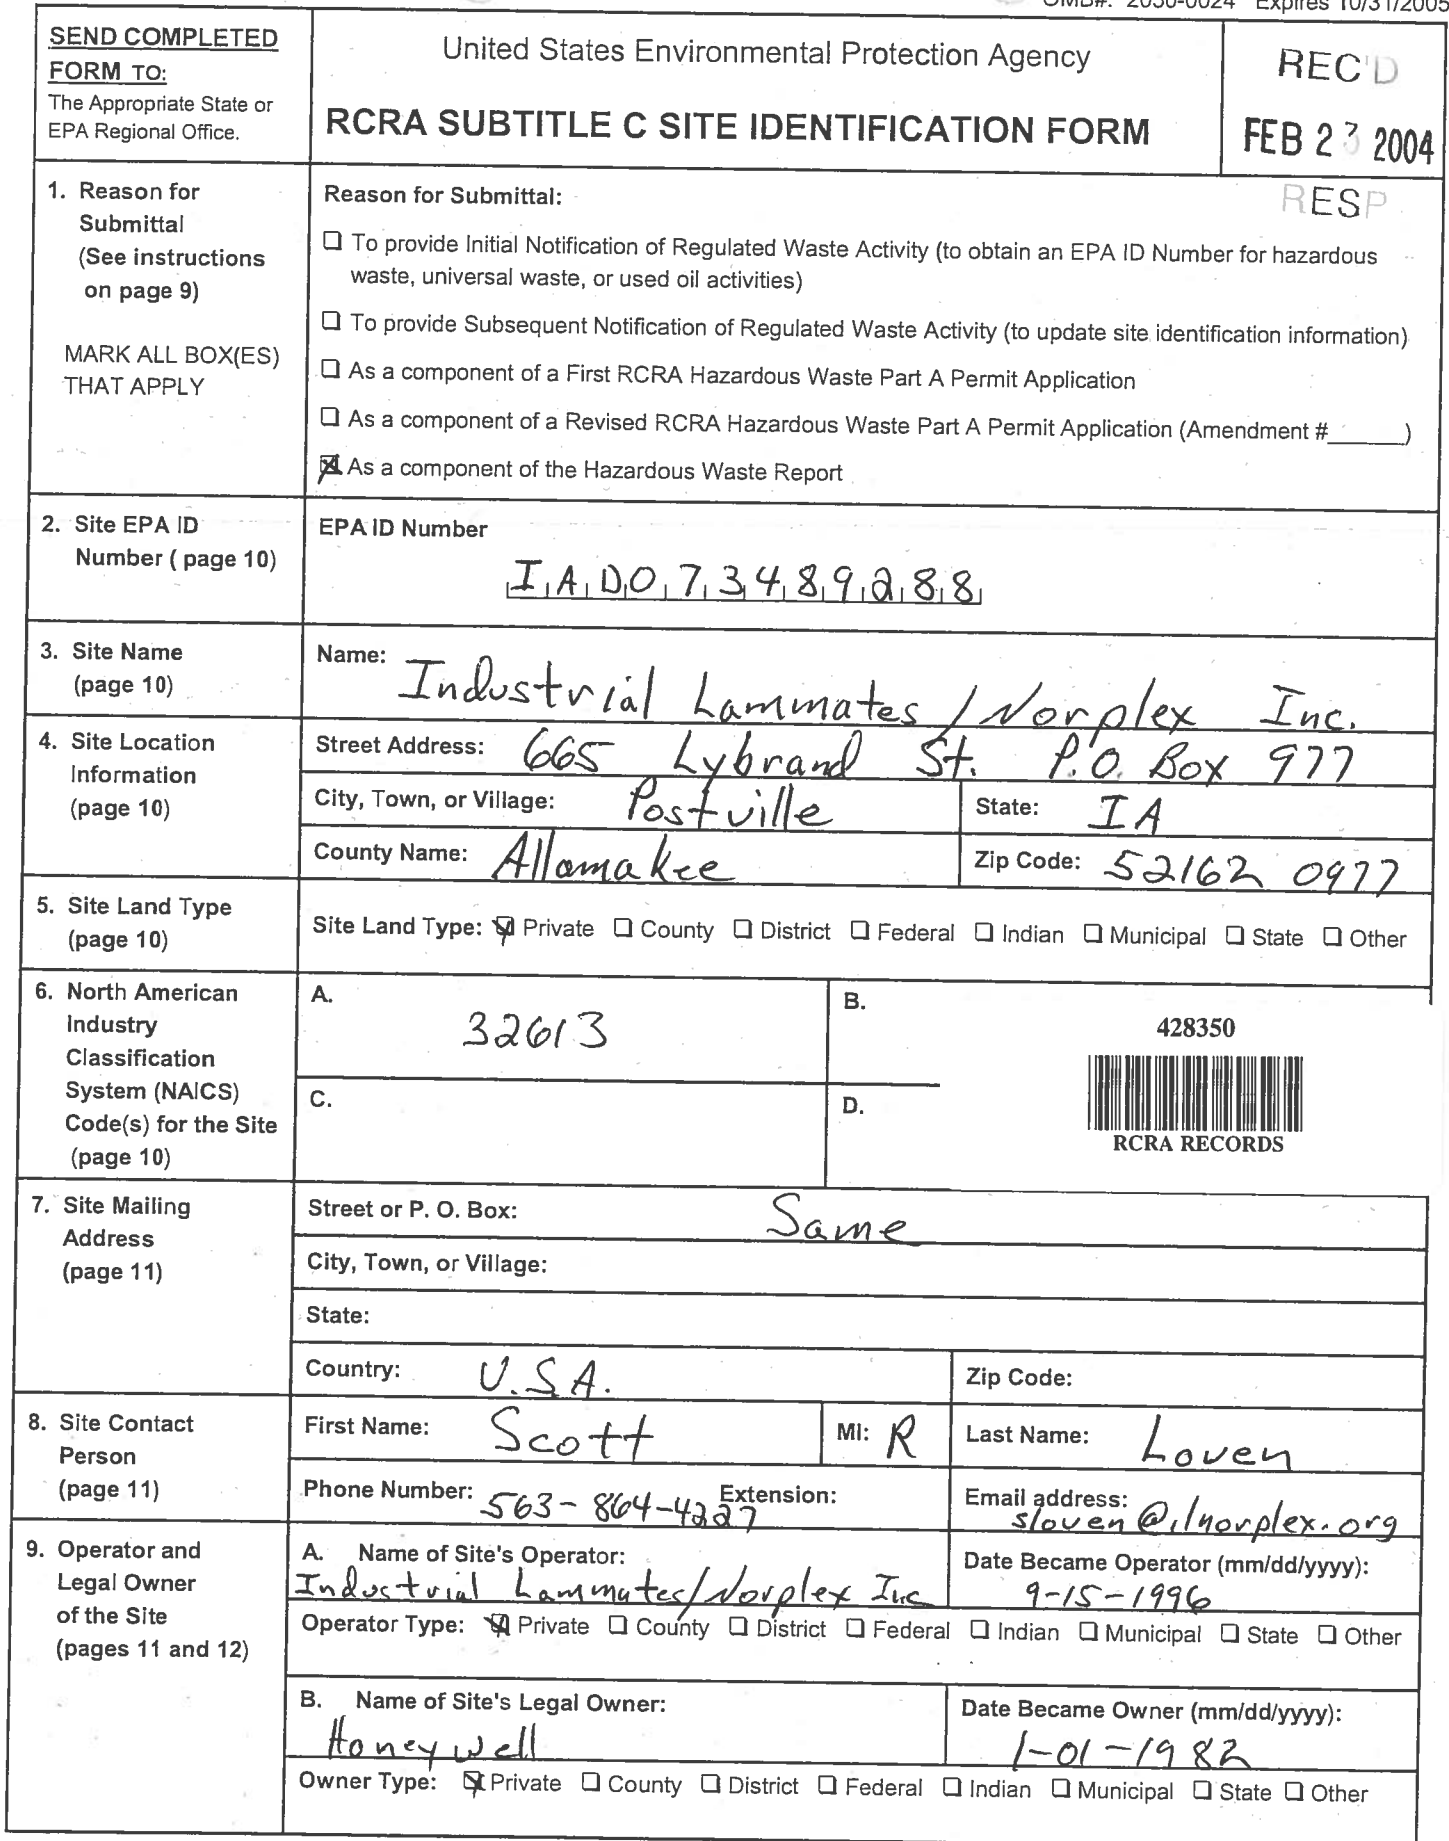 OMB#: 2050-0024 Expires 10/31/2005
SEND COMPLETED
FORM TO:
The Appropriate State or
EPA Regional Office.
United States Environmental Protection Agency
RCRA SUBTITLE C SITE IDENTIFICATION FORM
REC'D
FEB 23 2004
RESP
1. Reason for
Submittal
(See instructions
on page 9)
MARK ALL BOX(ES)
THAT APPLY
Reason for Submittal:
☐ To provide Initial Notification of Regulated Waste Activity (to obtain an EPA ID Number for hazardous
waste, universal waste, or used oil activities)
☐ To provide Subsequent Notification of Regulated Waste Activity (to update site identification information)
☐ As a component of a First RCRA Hazardous Waste Part A Permit Application
☐ As a component of a Revised RCRA Hazardous Waste Part A Permit Application (Amendment #______)
☒ As a component of the Hazardous Waste Report
2. Site EPA ID
Number ( page 10)
EPA ID Number
IAD073489288
3. Site Name
(page 10)
Name: Industrial Lammates / Norplex Inc.
4. Site Location
Information
(page 10)
Street Address: 665 Lybrand St. P.O. Box 977
City, Town, or Village: Postville State: IA
County Name: Allamakee Zip Code: 52162 0977
5. Site Land Type
(page 10)
Site Land Type: ☒ Private ☐ County ☐ District ☐ Federal ☐ Indian ☐ Municipal ☐ State ☐ Other
6. North American
Industry
Classification
System (NAICS)
Code(s) for the Site
(page 10)
A. 32613
B.
C.
D.
428350
RCRA RECORDS
7. Site Mailing
Address
(page 11)
Street or P. O. Box: Same
City, Town, or Village:
State:
Country: U.S.A. Zip Code:
8. Site Contact
Person
(page 11)
First Name: Scott MI: R Last Name: Loven
Phone Number: 563-864-4227 Extension: Email address: sloven@ilnorplex.org
9. Operator and
Legal Owner
of the Site
(pages 11 and 12)
A. Name of Site's Operator: Date Became Operator (mm/dd/yyyy):
Industrial Lammates/Norplex Inc 9-15-1996
Operator Type: ☒ Private ☐ County ☐ District ☐ Federal ☐ Indian ☐ Municipal ☐ State ☐ Other
B. Name of Site's Legal Owner: Date Became Owner (mm/dd/yyyy):
Honeywell 1-01-1982
Owner Type: ☒ Private ☐ County ☐ District ☐ Federal ☐ Indian ☐ Municipal ☐ State ☐ Other